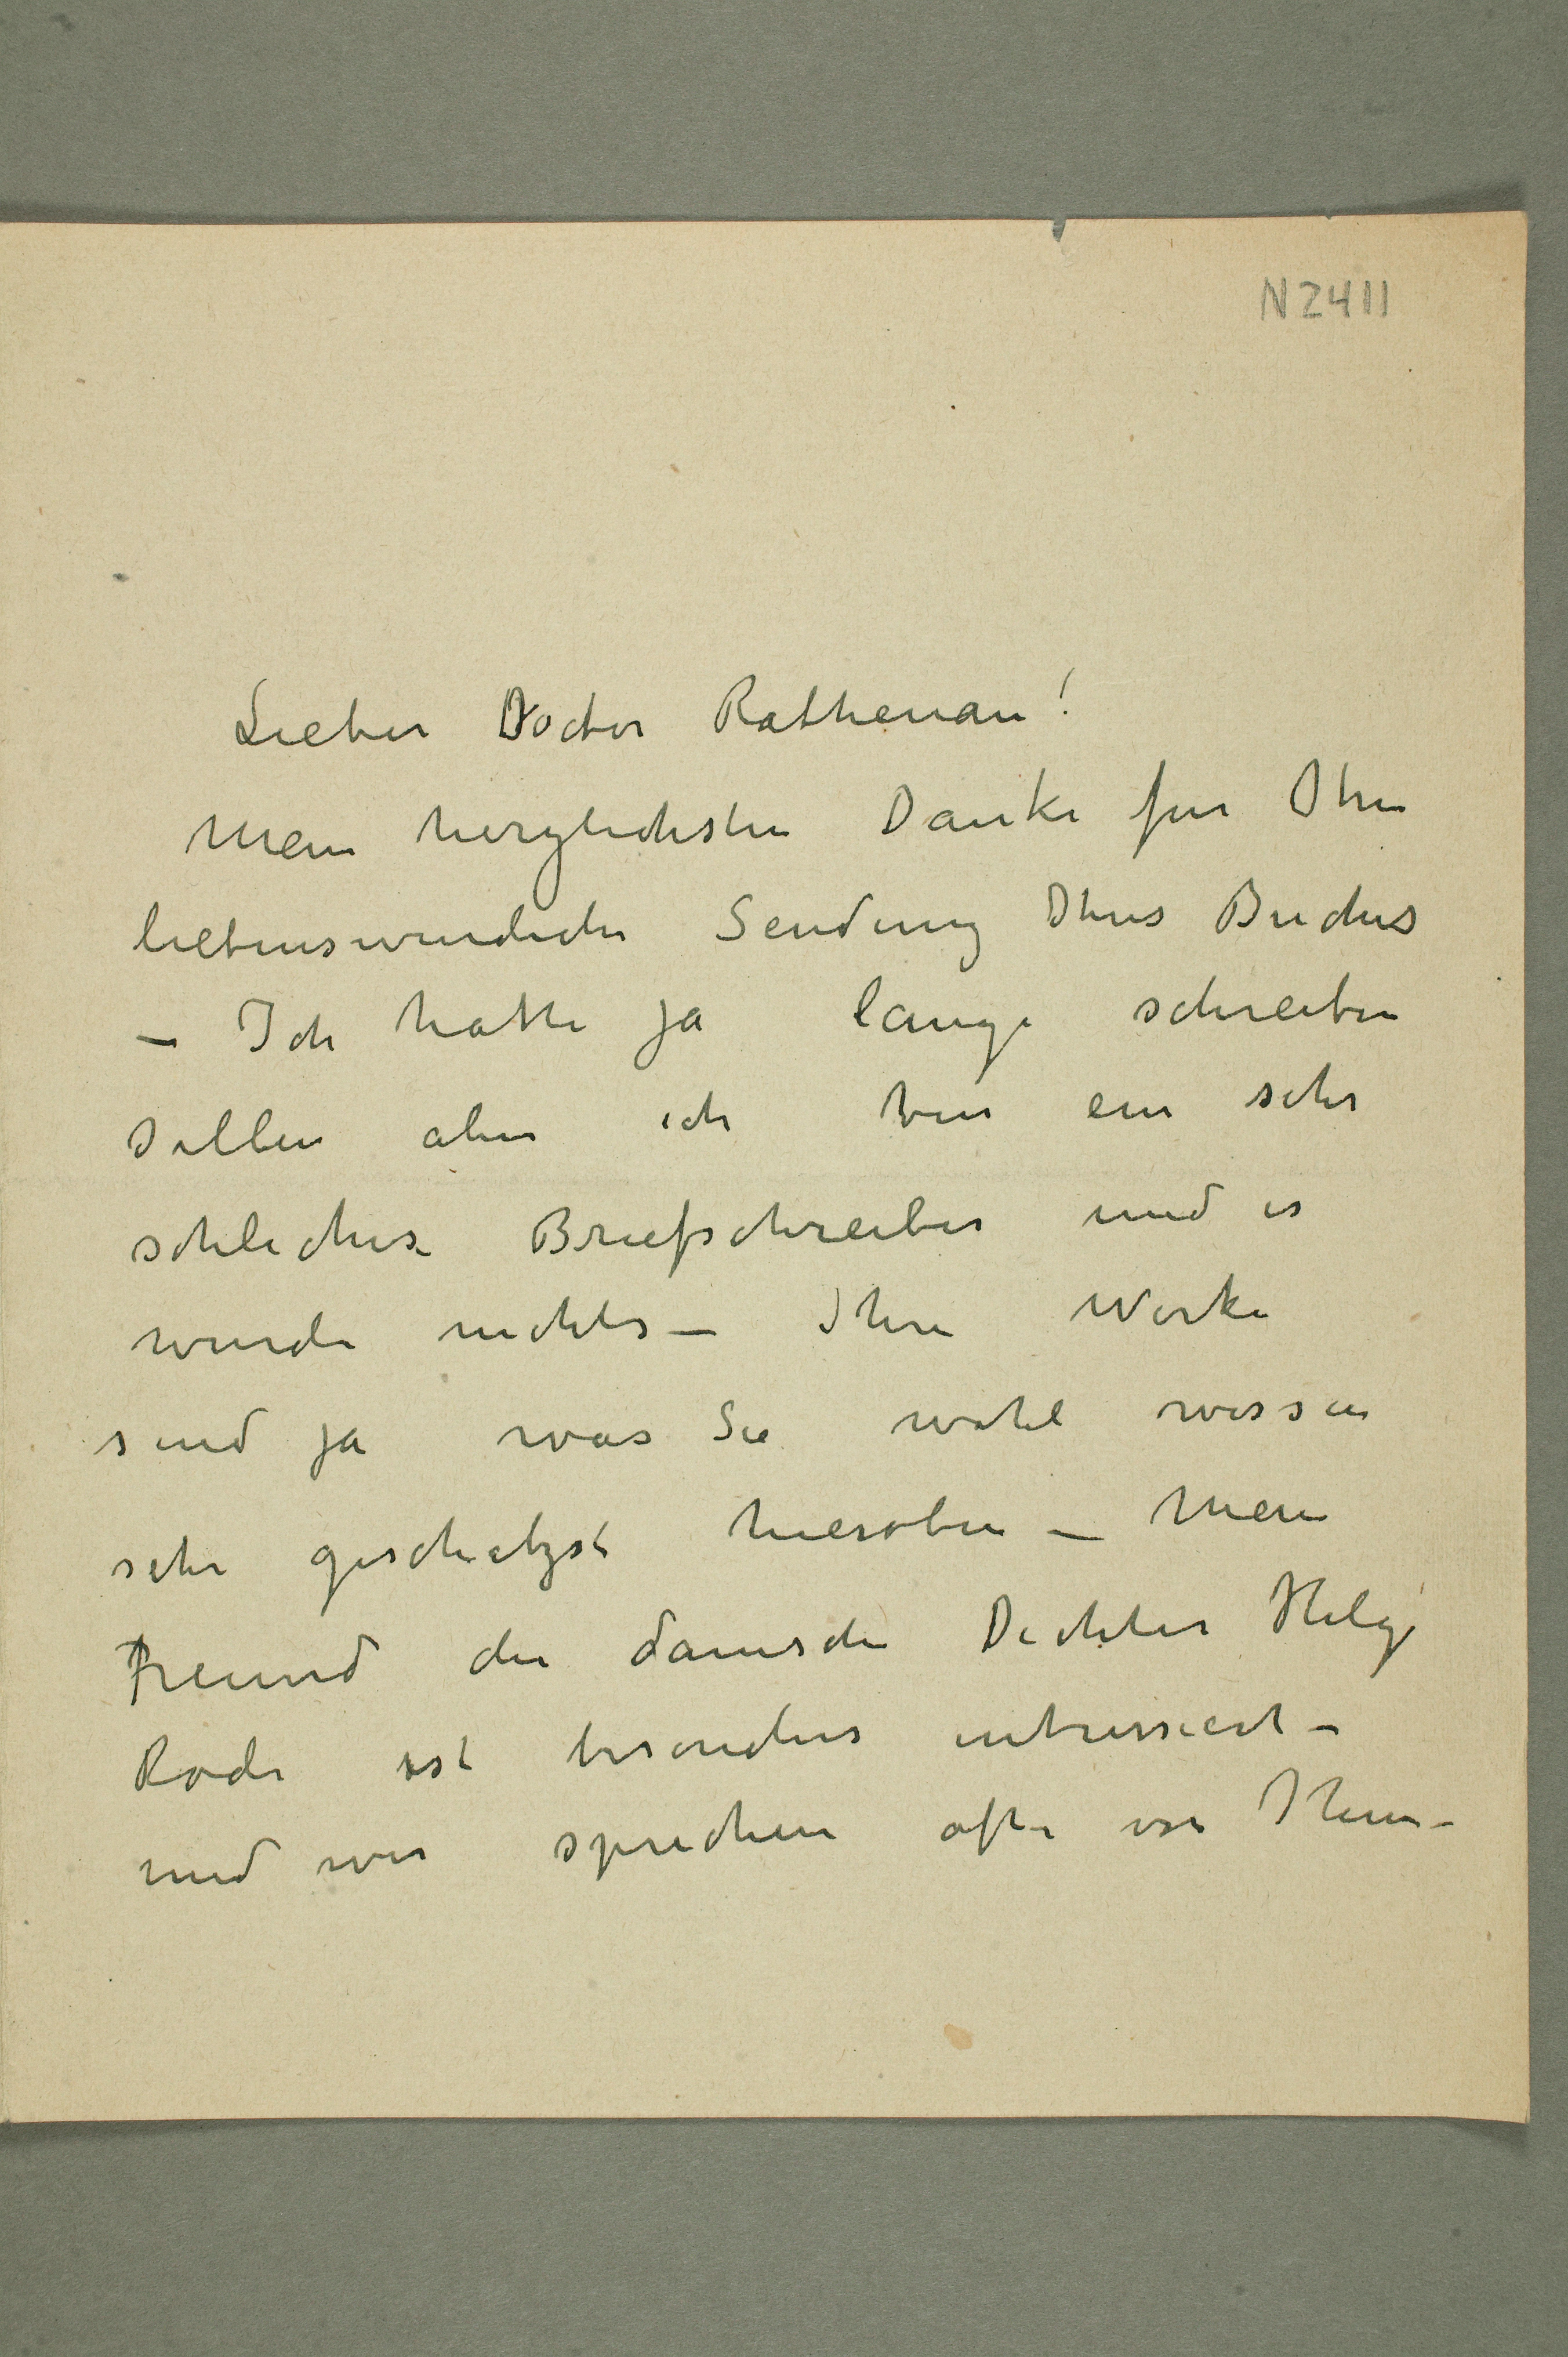 N 2411
Lieber Doctor Rathenau!
Mein herzlichsten Danke für Ihre
liebenswurdiche Sendung Ihres Buches
– Ich hatte ja lange schreiben
sollen aber ich bin ein sehr
schlechter Briefschreiber und es
wurde nichts – Ihre Werke
sind ja was Sie wohl wissen
sehr geschätzst hieroben – Mein
Freund der danische Dichter Helge
Rode ist besonders intressiert –
und wir sprechen ofte von Ihnen –